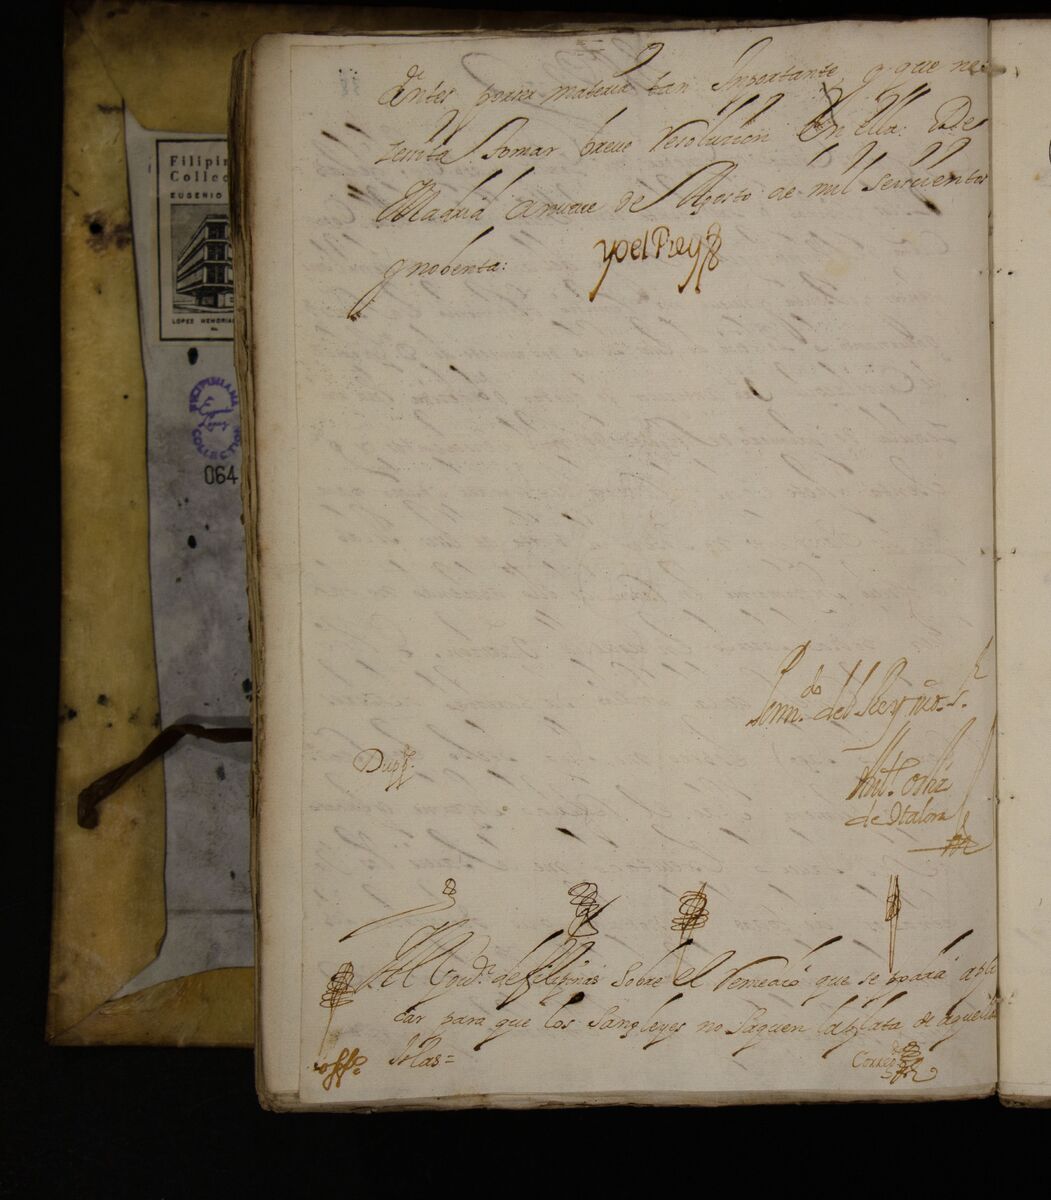 Filipin
Collec
EUGENIO
LOPEZ MEMORIAL
FILIPINIANA
COLLECTION
064
enter por ser materia tan Inportante, y que ne
zesita tomar breue Resolucion En ella: De
Madrid a nueue de Agosto de mil seiscientos
y nobenta:
yo el Rey
Por m.do del Rey nro. s.r
Ant.o Ortiz
de Otalora
Dupp.
Al Gou.r de filipinas sobre el remedio que se podrá apli
car para que los Sangleyes no saquen la plata de aquellas
Islas=
offo.
Correg.do